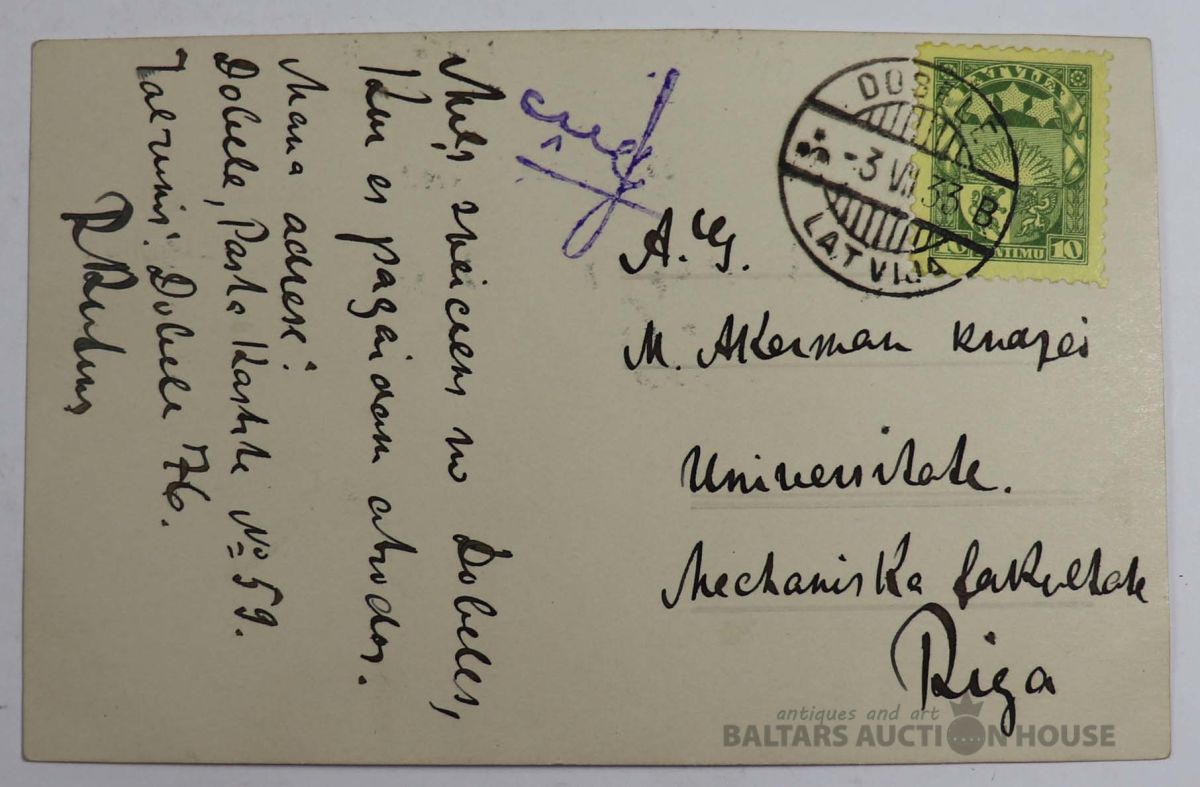 Mīļš sveiciens no Dobeles,
kur es pagaidam atrodos.
Mana adrese:
Dobele, Pasta Kastite № 59.
Talrunis: Dobele 76.
A. G.
M. Akerman kundzei
Universitate.
Mechaniska fakultate
Riga
DOBELE
-3 VII 33 B
LATVIJA
LATVIJA
10 SANTIMU 10
antiques and art
BALTARS AUCTION HOUSE